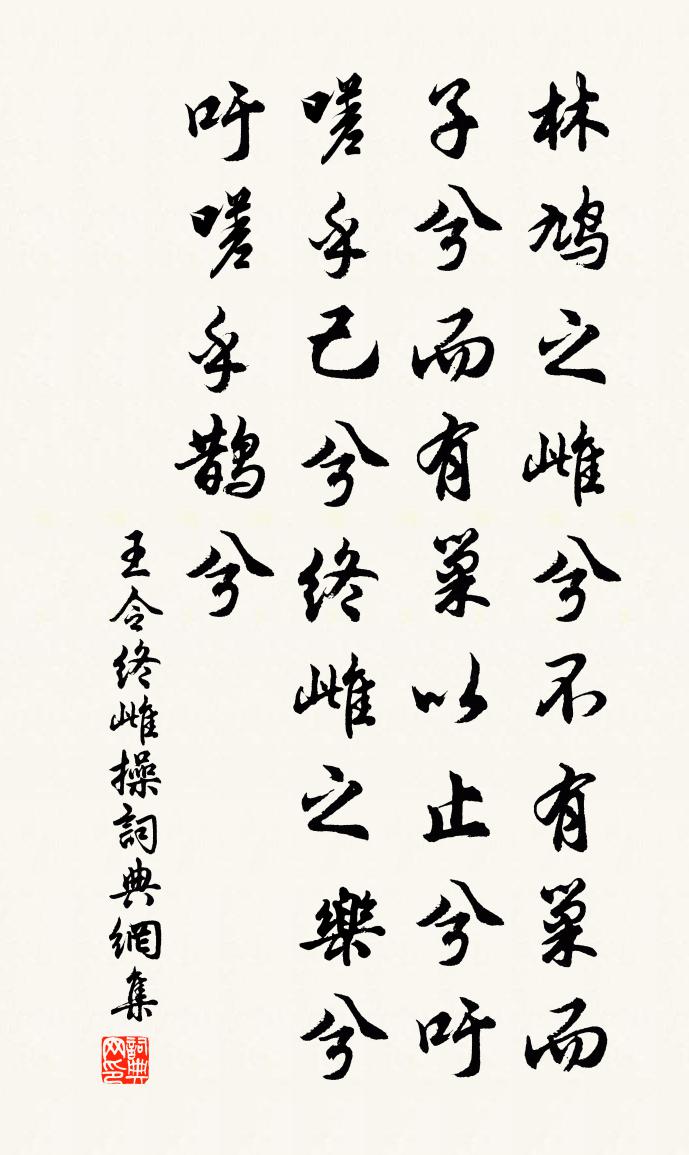 林鳩之雌兮不有巢而
子兮而有巢以止兮吁
嗟乎已兮終雌之樂兮
吁嗟乎鵲兮
王令終雌操詞典網集
詞典网印